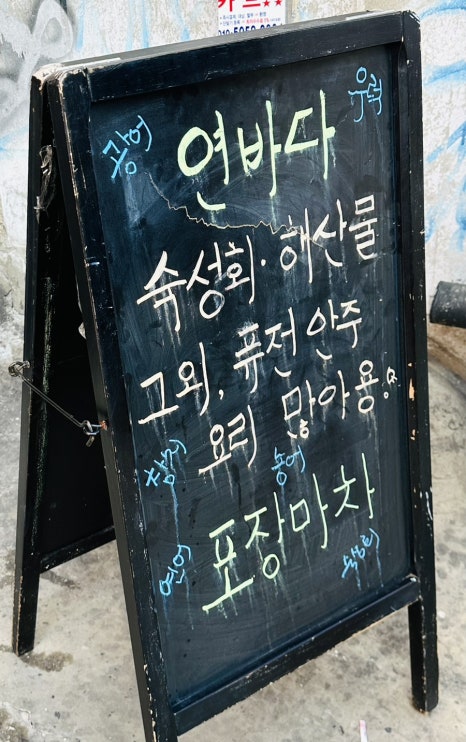 광어
우럭
연바다
숙성회·해산물
그외, 퓨전안주
요리 많아용.
참치
홍어
포장마차
연어